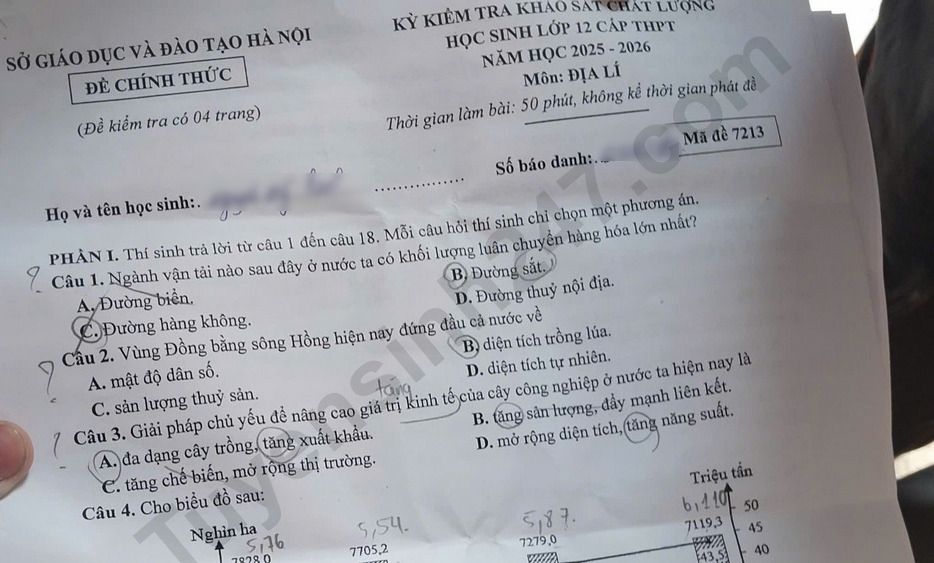 KỲ KIỂM TRA KHẢO SÁT CHẤT LƯỢNG
HỌC SINH LỚP 12 CẤP THPT
NĂM HỌC 2025 - 2026
Môn: ĐỊA LÍ
Thời gian làm bài: 50 phút, không kể thời gian phát đề
SỞ GIÁO DỤC VÀ ĐÀO TẠO HÀ NỘI
ĐỀ CHÍNH THỨC
(Đề kiểm tra có 04 trang)
Mã đề 7213
Họ và tên học sinh:. ............... Số báo danh:...
PHẦN I. Thí sinh trả lời từ câu 1 đến câu 18. Mỗi câu hỏi thí sinh chỉ chọn một phương án.
? Câu 1. Ngành vận tải nào sau đây ở nước ta có khối lượng luân chuyển hàng hóa lớn nhất?
A. Đường biển. B. Đường sắt.
C. Đường hàng không. D. Đường thuỷ nội địa.
? Câu 2. Vùng Đồng bằng sông Hồng hiện nay đứng đầu cả nước về
A. mật độ dân số. B. diện tích trồng lúa.
C. sản lượng thuỷ sản. D. diện tích tự nhiên.
tăng
? Câu 3. Giải pháp chủ yếu để nâng cao giá trị kinh tế của cây công nghiệp ở nước ta hiện nay là
A. đa dạng cây trồng, tăng xuất khẩu. B. tăng sản lượng, đẩy mạnh liên kết.
C. tăng chế biến, mở rộng thị trường. D. mở rộng diện tích, tăng năng suất.
Câu 4. Cho biểu đồ sau:
Nghìn ha Triệu tấn
5,76 5,54. 5,87. 6,110 50
7828,0 7705,2 7279,0 7119,3 45
43,5 40
Tuyensinh247.com